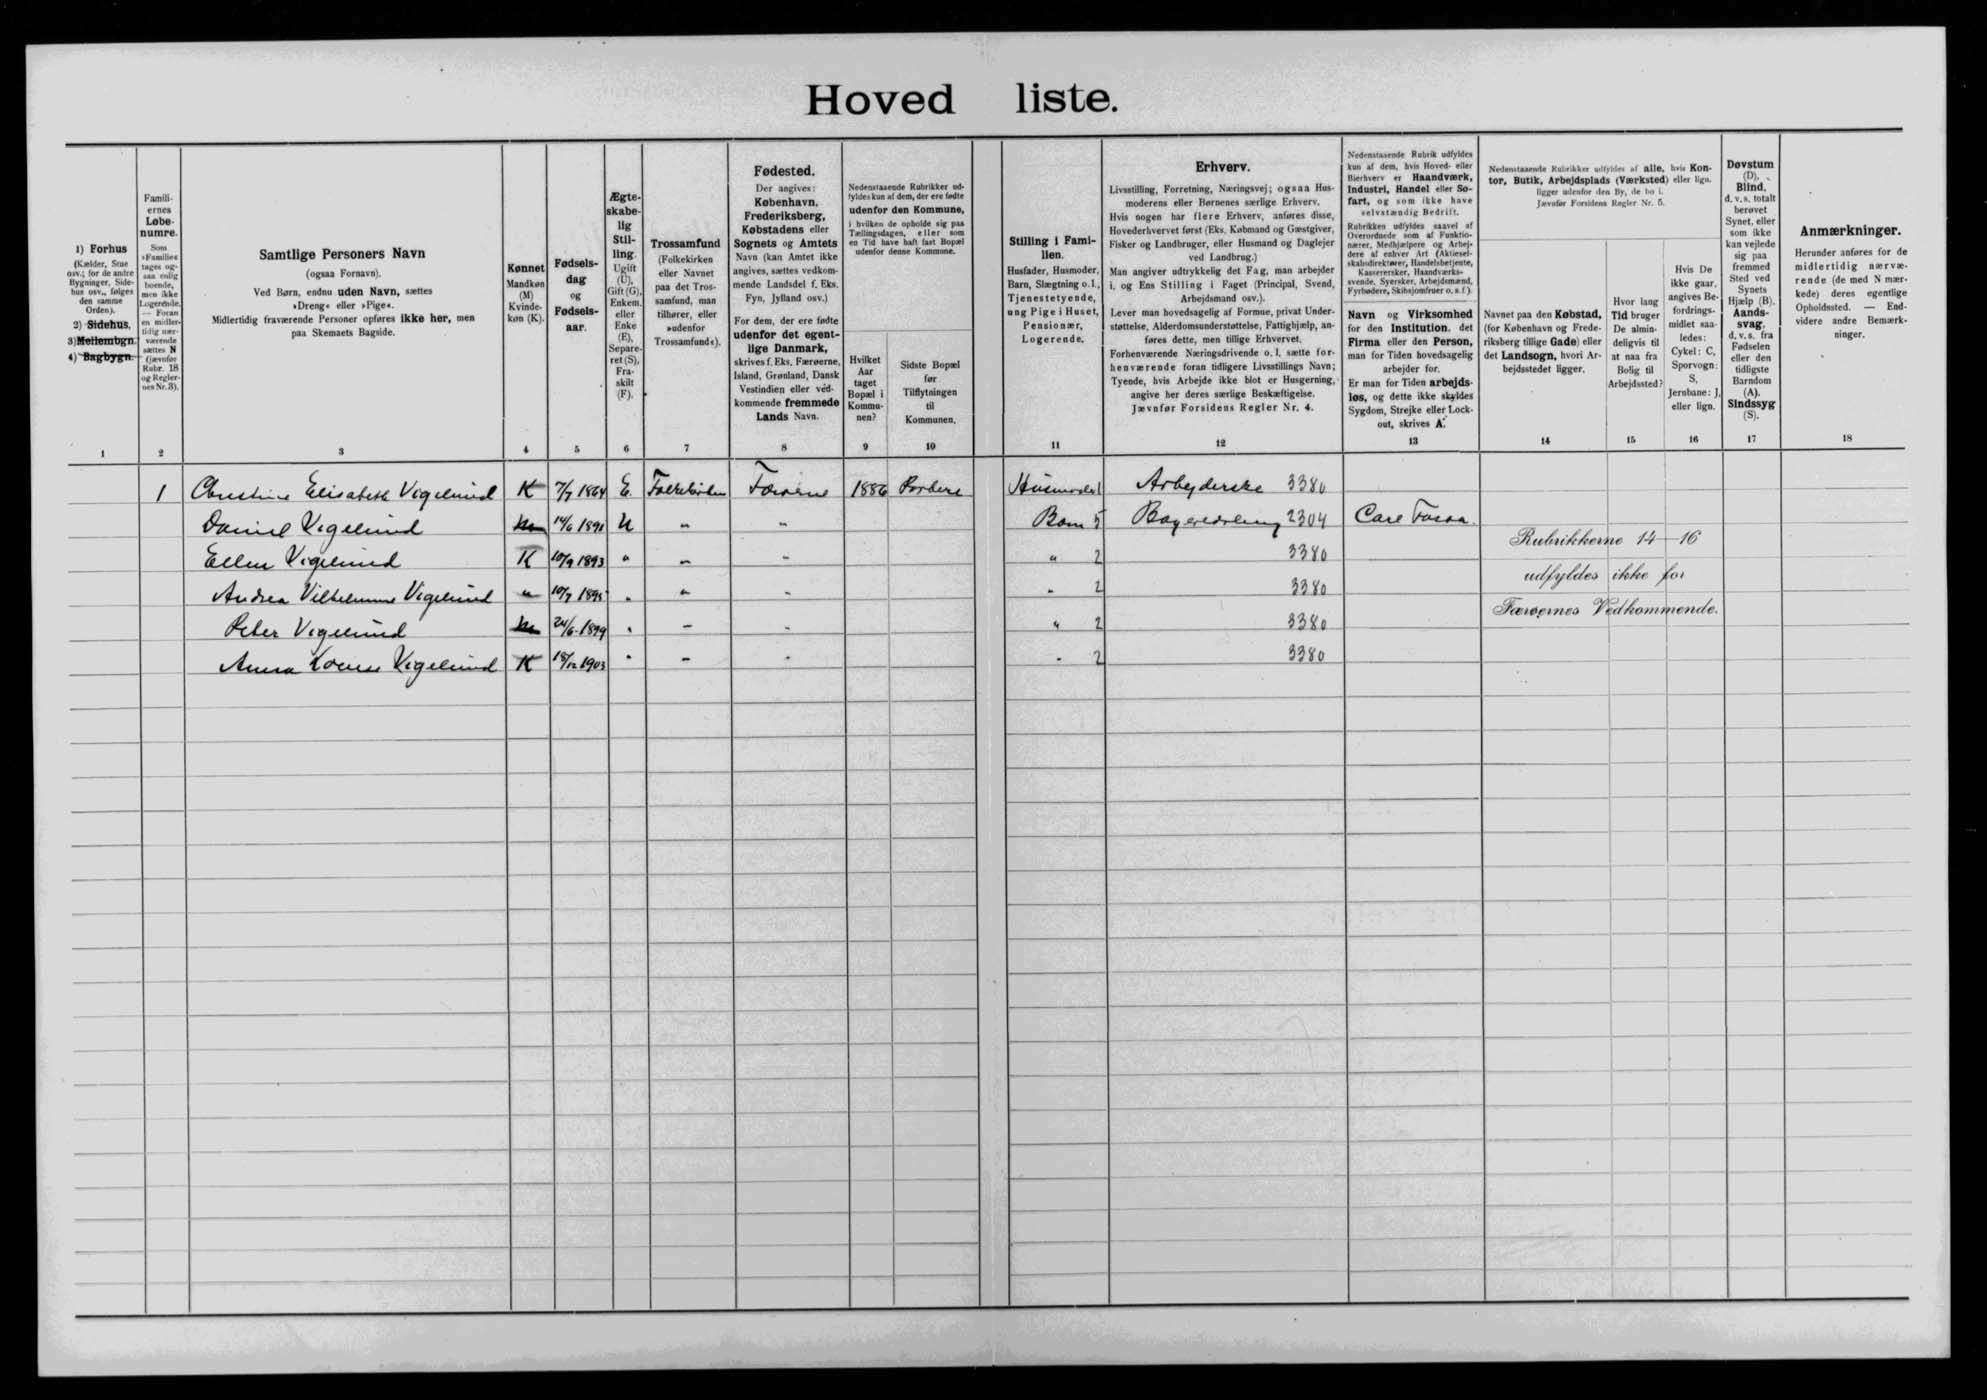 Hoved liste.
1) Forhus
(Kælder, Stue
osv.; for de andre
Bygninger, Side-
hus osv., følges
den samme
Orden).
2) Sidehus,
3) Mellembgn.
4) Bagbygn.
1
Famili-
ernes
Løbe-
numre.
Som
»Familie«
tages og-
saa enlig
boende,
men ikke
Logerende.
— Foran
en midler-
tidig nær-
værende
sættes N
(jævnfør
Rubr. 18
og Regler-
nes Nr. 3).
2
Samtlige Personers Navn
(ogsaa Fornavn).
Ved Børn, endnu uden Navn, sættes
»Dreng« eller »Pige«.
Midlertidig fraværende Personer opføres ikke her, men
paa Skemaets Bagside.
3
Kønnet
Mandkøn
(M)
Kvinde-
køn (K).
4
Fødsels-
dag
og
Fødsels-
aar.
5
Ægte-
skabe-
lig
Stil-
ling.
Ugift
(U),
Gift (G),
Enkem.
eller
Enke
(E),
Separe-
ret (S),
Fra-
skilt
(F).
6
Trossamfund
(Folkekirken
eller Navnet
paa det Tros-
samfund, man
tilhører, eller
»udenfor
Trossamfund«).
7
Fødested.
Der angives:
København,
Frederiksberg,
Købstadens eller
Sognets og Amtets
Navn (kan Amtet ikke
angives, sættes vedkom-
mende Landsdel f. Eks.
Fyn, Jylland osv.)
For dem, der ere fødte
udenfor det egent-
lige Danmark,
skrives f. Eks. Færøerne,
Island, Grønland, Dansk
Vestindien eller ved-
kommende fremmede
Lands Navn.
8
Nedenstaaende Rubrikker ud-
fyldes kun af dem, der ere fødte
udenfor den Kommune,
i hvilken de opholde sig paa
Tællingsdagen, eller som
en Tid have haft fast Bopæl
udenfor denne Kommune.
Hvilket
Aar
taget
Bopæl i
Kommu-
nen?
9
Sidste Bopæl
før
Tilflytningen
til
Kommunen.
10
Stilling i Fami-
lien.
Husfader, Husmoder,
Barn, Slægtning o. l.,
Tjenestetyende,
ung Pige i Huset,
Pensionær,
Logerende.
11
Erhverv.
Livsstilling, Forretning, Næringsvej; ogsaa Hus-
moderens eller Børnenes særlige Erhverv.
Hvis nogen har flere Erhverv, anføres disse,
Hovederhvervet først (Eks. Købmand og Gæstgiver,
Fisker og Landbruger, eller Husmand og Daglejer
ved Landbrug.)
Man angiver udtrykkelig det Fag, man arbejder
i, og Ens Stilling i Faget (Principal, Svend,
Arbejdsmand osv.).
Lever man hovedsagelig af Formue, privat Under-
støttelse, Alderdomsunderstøttelse, Fattighjælp, an-
føres dette, men tillige Erhvervet.
Forhenværende Næringsdrivende o. l. sætte for-
henværende foran tidligere Livsstillings Navn;
Tyende, hvis Arbejde ikke blot er Husgerning,
angive her deres særlige Beskæftigelse.
Jævnfør Forsidens Regler Nr. 4.
12
Nedenstaaende Rubrik udfyldes
kun af dem, hvis Hoved- eller
Bierhverv er Haandværk,
Industri, Handel eller Sø-
fart, og som ikke have
selvstændig Bedrift.
Rubrikken udfyldes saavel af
Overordnede som af Funktio-
nærer, Medhjælpere og Arbej-
dere af enhver Art (Aktiesel-
skabsdirektører, Handelsbetjente,
Kasserersker, Haandværks-
svende, Syersker, Arbejdsmænd,
Fyrbødere, Skibsjomfruer o. s. f.).
Navn og Virksomhed
for den Institution, det
Firma eller den Person,
man for Tiden hovedsagelig
arbejder for.
Er man for Tiden arbejds-
løs, og dette ikke skyldes
Sygdom, Strejke eller Lock-
out, skrives A.
13
Nedenstaaende Rubrikker udfyldes af alle, hvis Kon-
tor, Butik, Arbejdsplads (Værksted) eller lign.
ligger udenfor den By, de bo i.
Jævnfør Forsidens Regler Nr. 5.
Navnet paa den Købstad,
(for København og Frede-
riksberg tillige Gade) eller
det Landsogn, hvori Ar-
bejdsstedet ligger.
14
Hvor lang
Tid bruger
De almin-
deligvis til
at naa fra
Bolig til
Arbejdssted?
15
Hvis De
ikke gaar,
angives Be-
fordrings-
midlet saa-
ledes:
Cykel: C,
Sporvogn:
S,
Jernbane: J,
eller lign.
16
Døvstum
(D),
Blind,
d. v. s. totalt
berøvet
Synet, eller
som ikke
kan vejlede
sig paa
fremmed
Sted ved
Synets
Hjælp (B).
Aands-
svag,
d. v. s. fra
Fødselen
eller den
tidligste
Barndom
(A).
Sindssyg
(S).
17
Anmærkninger.
Herunder anføres for de
midlertidig nærvæ-
rende (de med N mær-
kede) deres egentlige
Opholdssted. — End-
videre andre Bemærk-
ninger.
18
1 Christine Elisabeth Vigelund K 7/7 1864 E. Folkekirken Færøerne 1886 Husmoder 1 Arbejderske 3380
Daniel Vigelund M 14/6 1891 U " " Barn 5 Bagerlærling 2304
Ellen Vigelund K 10/9 1893 " " " " 2 3380
Andrea Vilhelmine Vigelund " 10/7 1895 " " " " 2 3380
Peter Vigelund M 24/6 1899 " " " " 2 3380
Anna Louise Vigelund K 18/12 1903 " " " " 2 3380
Rubrikkerne 14—16
udfyldes ikke for
Færøernes Vedkommende.